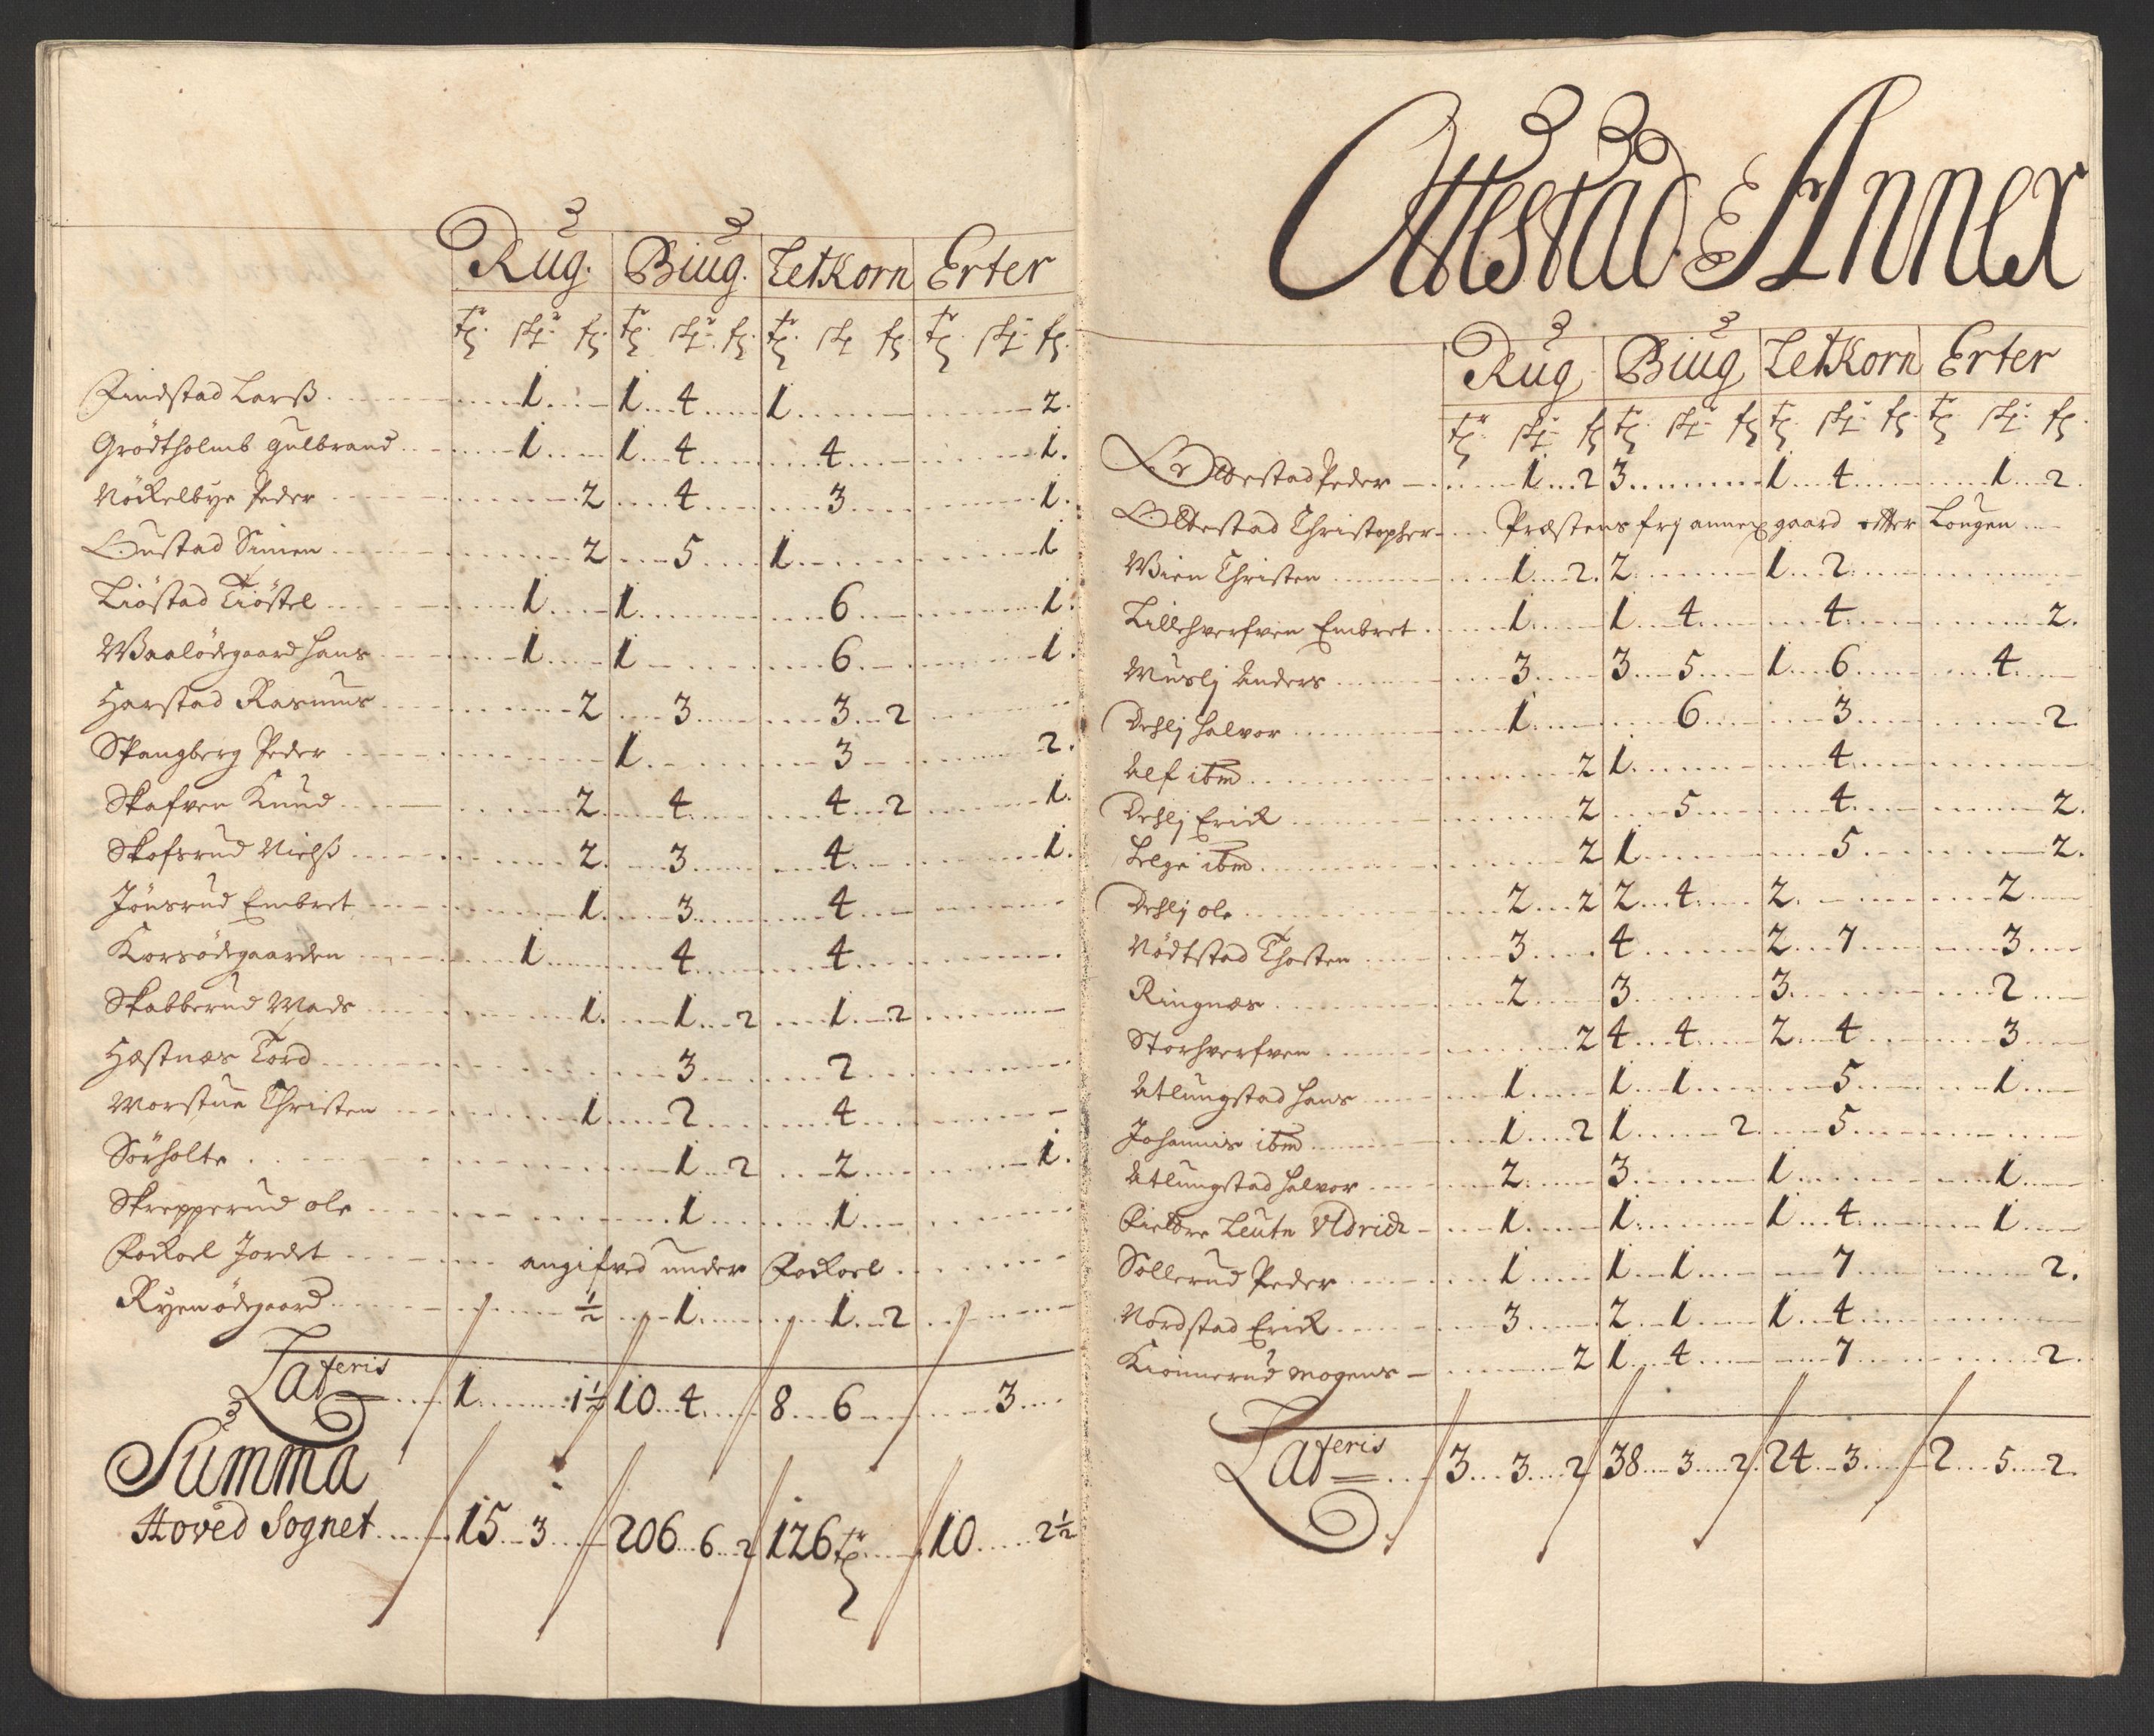 Rug. Biug. Letkorn Erter
tr. skp. fr. tr. skp. fr. tr. skp fr tr. skp. fr.
Findstad Larß 1 1 4 1 2
Grödtholmb gulbrand 1 1 4 4 1.
Nöckelbye Peder 2 4 3 1.
Oustad Simen 2 5 1 1
Liöstad Tiöstel 1 1 6 1.
Waalödegaard hans 1 1 6 1.
Harstad Rasmus 2 3 3 2
Skangberg Peder 1 3 2.
Skafven Knud 2 4 4 2 1.
Skofsrud Nielß 2 3 4 1.
Jönsrud Embret 1 3 4
Korsödegaarden 1 4 4
Skabberud Mads 1 1 2 1 2
Hæstnæs Tord 3 2
Worstue Christen 1 2 4
Sörholte 1 2 2 1.
Skrepperud ole 1 1
Fockoel Jordet angifved under Fockoel
Ryen ödegaard ½ 1 1 2
Lateris 1 1½ 10 4 8 6 3
Summa
Hoved Sognet 15 3 206 6 2 126 tr 10 2½
Ottestad Annex
Rug Biug Letkorn Erter
tr. skp. fr tr. skp. fr tr. skp. fr. tr. skp. fr.
Ottestad Peder 1 2 3 1 4 1 2
Ottestad Christopher Præstens frj annex gaard effter Lougen
Wien Christen 1 2. 2 1 2
Lillehverfven Embret 1 1 4 4 2.
Muslj Anders 3 3 5 1 6 4
Dehlj halvor 1 6 3 2
Alf ibm 2 1 4
Dehlj Erick 2 5 4 2.
Helge ibm 2 1 5 2.
Dehlj ole 2 2 2 4 2 2
Nödtstad Thosten 3 4 2 7 3
Ringnæs 2 3 3 2
Storhverfven 2 4 4 2 4 3
Atlungstad hans 1 1 1 5 1
Johannis ibm 1 2 1 2 5
Atlungstad halvor 2 3 1 1
Leutn Uldrich 1 1 1 4 1
Sollerud Peder 1 1 1 7 2.
Nordstad Erick 3 2 1 1 4
Kionnerud mogens 2 1 4 7 2
Lateris 3 3 2 38 3 2 24 3 2 5 2